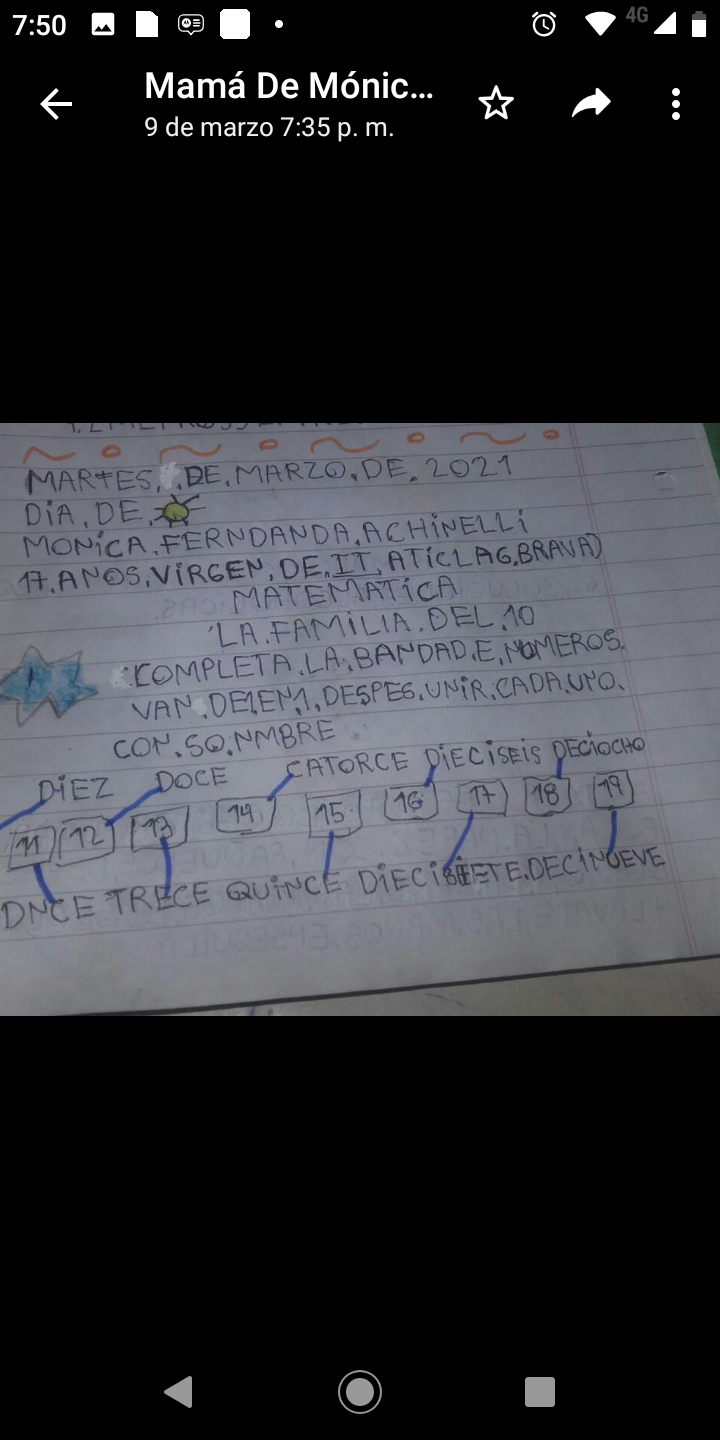 7:50 4G
Mamá De Mónic...
9 de marzo 7:35 p. m.
MARTES, .DE.MARZO.DE.2021
DiA.DE.
MONiCA.FERNDANDA.ACHiNELLi
17.AÑOS.ViRGEN.DE.IT.ATiCLAG.BRAVA)
MATEMATiCA
LA.FAMiLIA.DEL.10
COMPLETA.LA.BANDAD.E.NUMEROS.
VAN.DE1EN1.DESPES.UNiR.CADA.UNO.
CON.SO.NMBRE
DiEZ DOCE CATORCE DiECiSEiS DECiOCHO
11 12 13 14 15 16 17 18 19
ONCE TRECE QUiNCE DiECiSiETE.DECiNUEVE